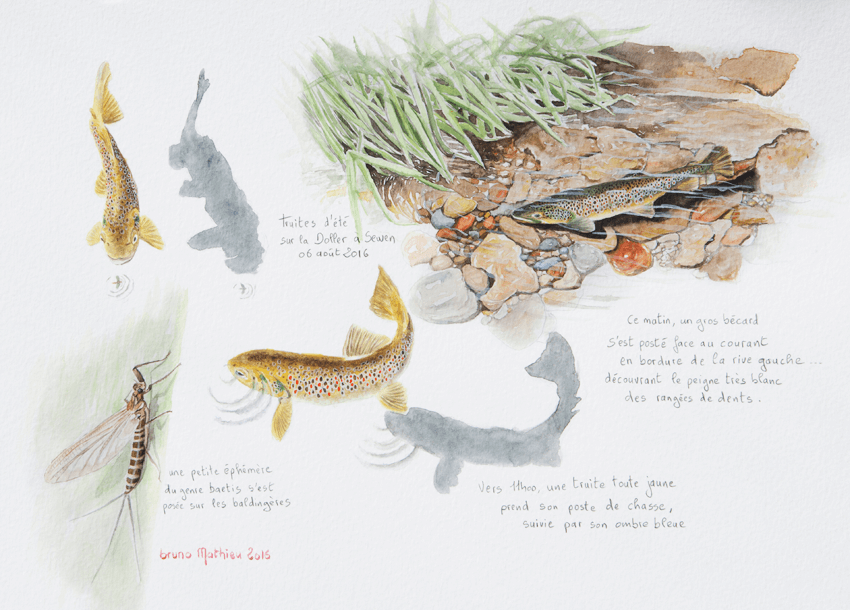 Traites d'été
sur la Doller à Sewen
06 août 2016
Ce matin, un gros bécard
s'est posté face au courant
en bordure de la rive gauche ...
découvrant le peigne très blanc
des rangées de dents.
une petite éphémère
du genre baetis s'est
posée sur les baldingères
Vers 11h00, une traite toute jaune
prend son poste de chasse,
suivie par son ombre bleue
bruno Mathieu 2015